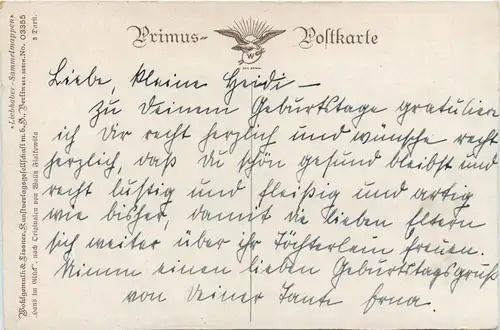 Primus- Postkarte
W
Liebe, kleine Heidi –
zu Deinem Geburtstage gratuliere
ich Dir recht herzlich und wünsche recht
herzlich, daß Du schön gesund bleibst und
recht lustig und fleißig und artig
wie bisher, damit die lieben Eltern
sich weiter über ihr Töchterlein freuen.
Nimm einen lieben Geburtstagsgruß
von Deiner Tante Erna.
"Liebhaber-Sammelmappen"
Wohlgemuth & Lissner, Kunstverlagsgesellschaft m.b.H., Berlin No. 03355
"Hans im Glück", nach Originalen von